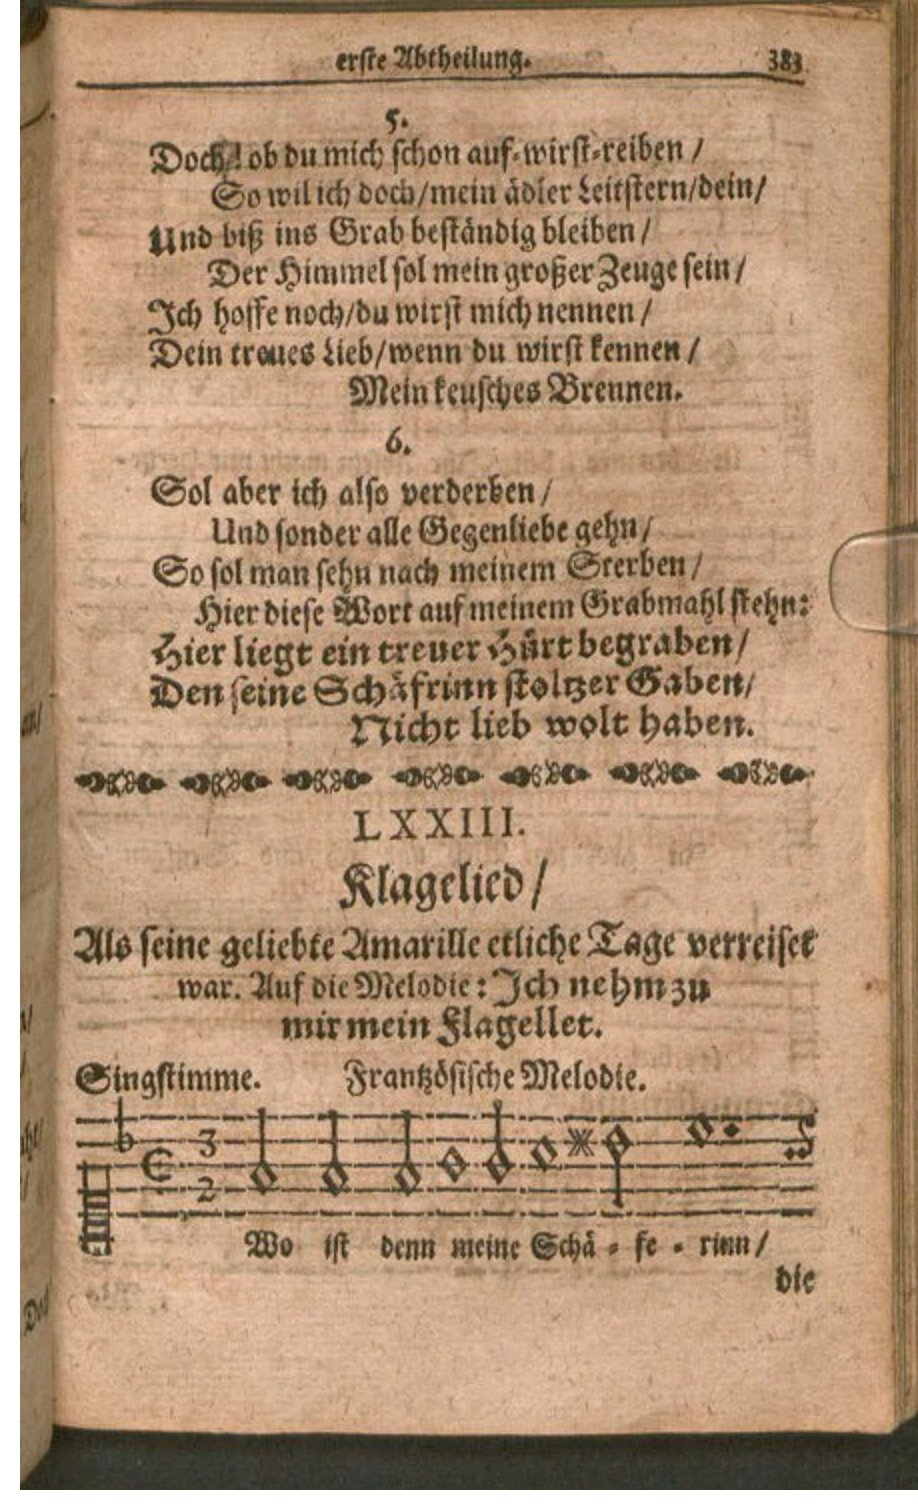 erste Abtheilung. 383
5.
Doch! ob du mich schon auf-wirst-reiben /
So wil ich doch/mein ädler Leitstern/dein/
Und biß ins Grab beständig bleiben /
Der Himmel sol mein großer Zeuge sein /
Ich hoffe noch/du wirst mich nennen /
Dein treues Lieb/wenn du wirst kennen /
Mein keusches Brennen.
6.
Sol aber ich also verderben /
Und sonder alle Gegenliebe gehn /
So sol man sehn nach meinem Sterben /
Hier diese Wort auf meinem Grabmahl stehn:
Hier liegt ein treuer Hürt begraben/
Den seine Schäfrinn stoltzer Gaben/
Nicht lieb wolt haben.
LXXIII.
Klagelied /
Als seine geliebte Amarille etliche Tage verreiset
war. Auf die Melodie: Ich nehm zu
mir mein Flagellet.
Singstimme. Frantzösische Melodie.
3
2
Wo ist denn meine Schä - fe - rinn /
die